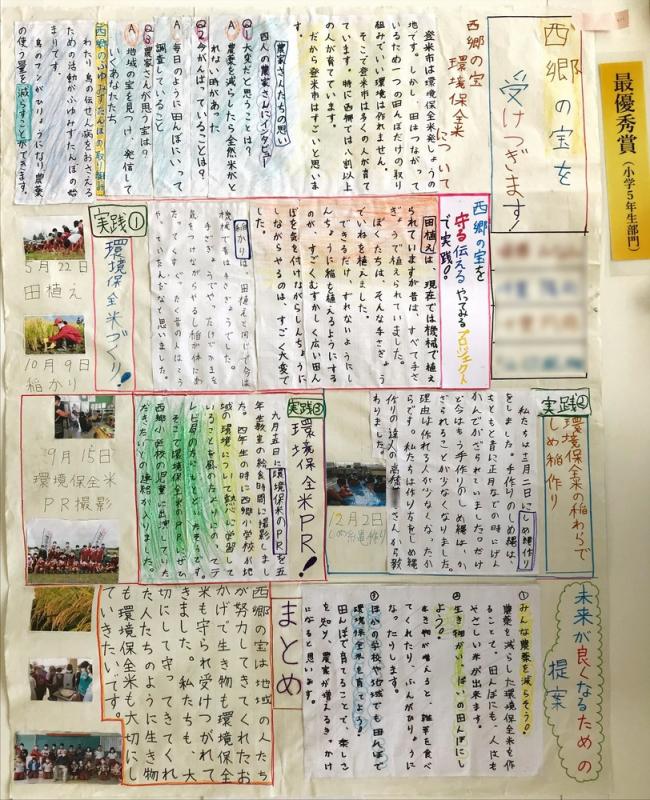 最優秀賞(小学5年生部門)
西郷の宝を
受けつぎます
西郷の宝
環境保全米
について
登米市は環境保全米発しょうの
地です。しかし、田はつながって
いるため一つの田んぼだけの取り
組みでいい環境は作れません。
そこで登米市は多くの人が育て
ています。特に西郷では八割以上
の人が育てています。
だから登米市はすごいと思いま
す。
農家さんたちの思い
四人の農家さんにインタビュー
Q1 大変だと思うことは?
A 農薬を減らしたら全然米がと
れない時があった
Q2 今がんばっていることは?
A 毎日のように田んぼにいって
調査していること
Q3 農家さんが思う宝は?
A 地域の宝を見つけ、発信して
いくあなたたち
西郷のふゆみずたんぼの取り組み
わたり鳥の伝せん病をおさえる
ための活動がふゆみずたんぼの始
まりです。
鳥のフンがひりょうになり農薬
の使う量を減らすことができます。
西郷の宝を
守る伝えるやってみるプロジェクト
で実践!
田植えは、現在では機械で植え
られていますが昔は、すべて手さ
ぎょうで植えられていました。
ぼくたちは、そんな手さぎょう
でいねを植えました。
できるだけ、すれないようにし
んちょうに稲を植えるようにする
のが、すごくむずかしく広い田ん
ぼを気を付けながらしんちょうに
しながらやるのは、すごく大変で
した。
稲かりは、田植えと同じで今は
機械で昔は手さぎょうでした。
実践①
環境保全米づくり!
5月22日
田植え
10月9日
稲かり
実践②
環境保全米の稲わらで
しめ縄作り
私たちは十二月二日にしめ縄作り
をしました。手作りのしめ縄は、
もともと昔に正月などの時にげん
かんでかざられていました。だけ
ど今はもう手作りのしめ縄は、か
ざられることが少なくなりました。
理由は作れる人が少なくなったか
らです。私たちは作り方をしめ縄
作りの達人の高橋さんから教
わりました。
12月2日
しめ縄作り
実践③
環境保全米PR!
九月十五日に環境保全米のPRを五
年生教室の給食時間に撮影しまし
た。四年生の時に西郷小学校が地
域の環境について熱心に学習して
いることを
そこで環境保全米のPRにぜひ
西郷小学校の児童に出演していた
だきたいとの連絡がありました。
9月15日
環境保全米
PR撮影
未来が良くなるための
提案
①みんな農薬を減らそう!
農薬を減らした環境保全米を作
ることで、田んぼにも、人にも
やさしい米が出来ます。
②生き物がいっぱいの田んぼにし
よう!
生き物が増えると、雑草を食べ
てくれたり、ふんがひりょうに
なったりします。
③ほかの学校や地域でも田んぼで
環境保全米を育てよう!
田んぼで育てることで、楽しさ
を知り、農家が増えるきっかけ
になると思います。
まとめ
西郷の宝は地域の人たち
が努力してきてくれたお
かげで生き物も環境保全
米も守られ受けつがれて
きました。私たちも、大
切にして守ってきてくれ
た人たちのように生き物
も環境保全米も大切にし
ていきたいです。